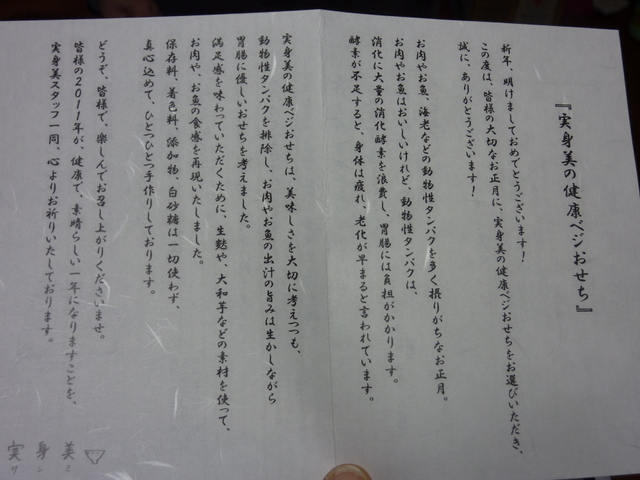 『実身美の健康ベジおせち』
祈年、明けましておめでとうございます！
この度は、皆様の大切なお正月に、実身美の健康ベジおせちをお選びいただき、
誠に、ありがとうございます！
お肉やお魚、海老などの動物性タンパクを多く摂りがちなお正月。
お肉やお魚はおいしいけれど、動物性タンパクは、
消化に大量の消化酵素を浪費し、胃腸には負担がかかります。
酵素が不足すると、身体は疲れ、老化が早まると言われています。
実身美の健康ベジおせちは、美味しさを大切に考えつつも、
動物性タンパクを排除し、お肉やお魚の出汁の旨みは生かしながら
胃腸に優しいおせちを考えました。
満足感を味わっていただくために、生麩や、大和芋などの素材を使って、
お肉や、お魚の食感を再現いたしました。
保存料、着色料、添加物、白砂糖は一切使わず、
真心込めて、ひとつひとつ手作りしております。
どうぞ、皆様で、楽しんでお召し上がりくださいませ。
皆様の2011年が、健康で、素晴らしい一年になりますことを、
実身美スタッフ一同、心よりお祈りいたしております。
実身美
サンミ